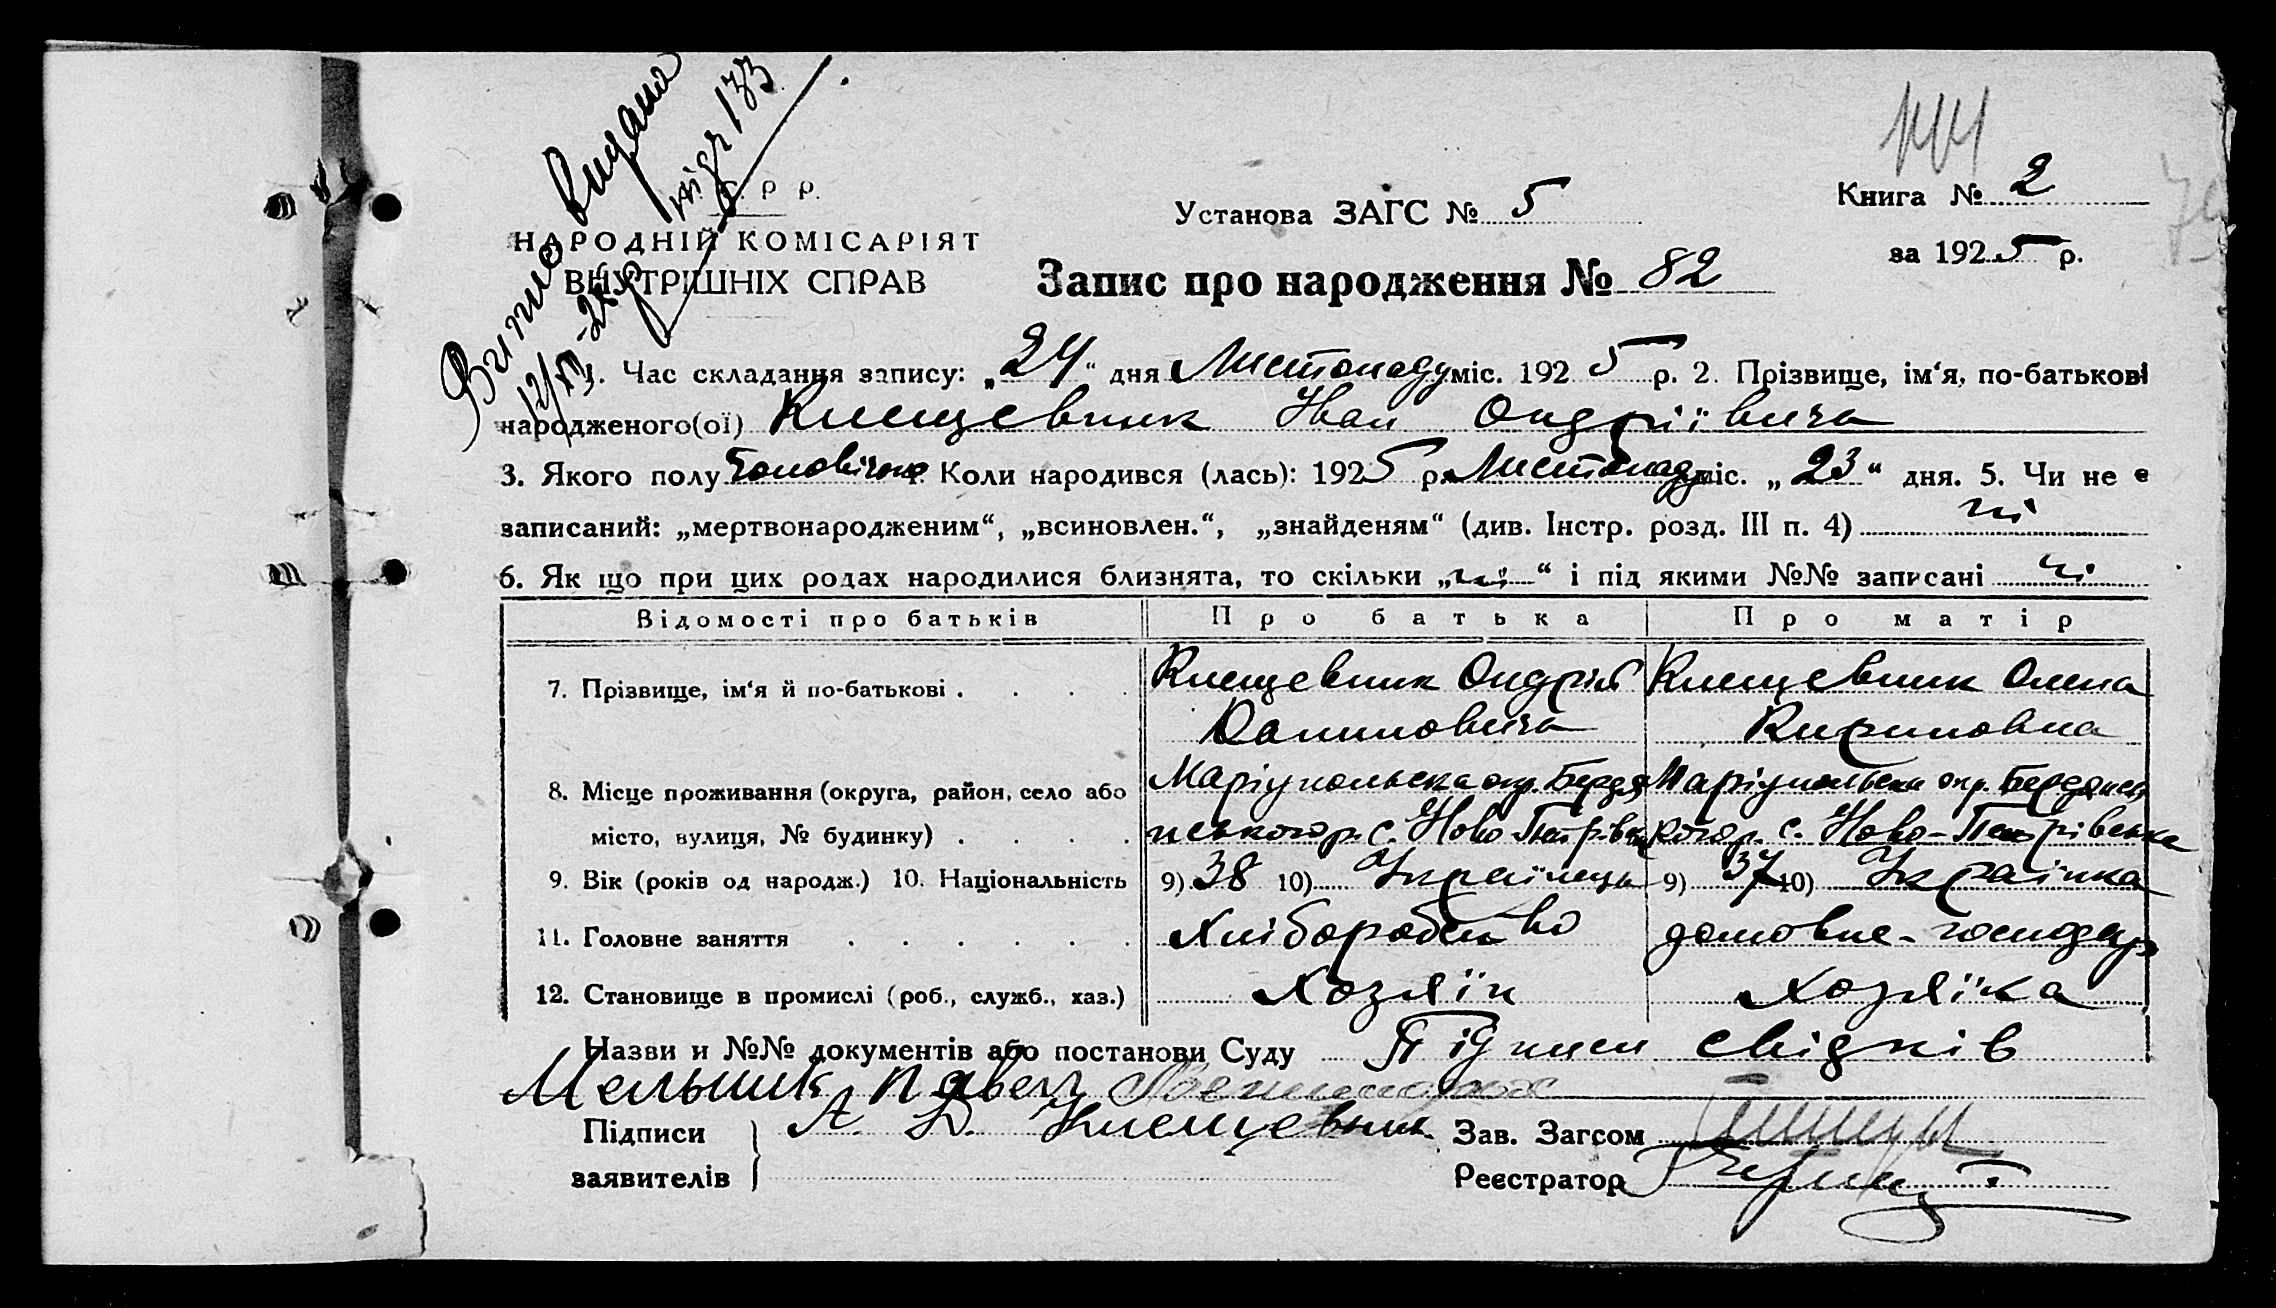 Витяг видано
12/XII-25р.
під ч 133
144
. Р Р.
НАРОДНІЙ КОМІСАРІЯТ
ВНУТРІШНІХ СПРАВ
Установа ЗАГС № 5
Книга № 2
за 1925 р.
Запис про народження № 82
1. Час складання запису: „24" дня Листопаду міс. 1925 р. 2. Прізвище, ім'я, по-батькові
народженого(ої) Клещевник Іван Ондріївичь
3. Якого полу Чоловічого Коли народився (лась): 1925 р. Листопаду міс. „23" дня. 5. Чи не є
записаний: „мертвонародженим", „всиновлен.", „знайденям" (див. Інстр. розд. III п. 4) ні
6. Як що при цих родах народилися близнята, то скільки „ні" і під якими №№ записані ні
Відомості про батьків Про батька Про матір
7. Прізвище, ім'я й по-батькові . . . . Клещевник Ондрій Клещевник Олена
Даниловичь Кириловна
8. Місце проживання (округа, район, село або Маріупольська окр. Бердя Маріупольська окр. Бердянсь
місто, вулиця, № будинку) . . . . нського р. с. Ново Петрівка кого р. с. Ново-Петрівська
9. Вік (років од народж.) 10. Національність 9) 38 10) Українець 9) 37 10) Українка
11. Головне заняття . . . . . . Хліборобство домовне-господар
12. Становище в промислі (роб., служб., хаз.) Хозяїн Хозяїка
Назви и №№ документів або постанови Суду Підписи свідків
Мельник Павел
Підписи А. Д. Клещевник Зав. Загсом
заявителів Реєстратор